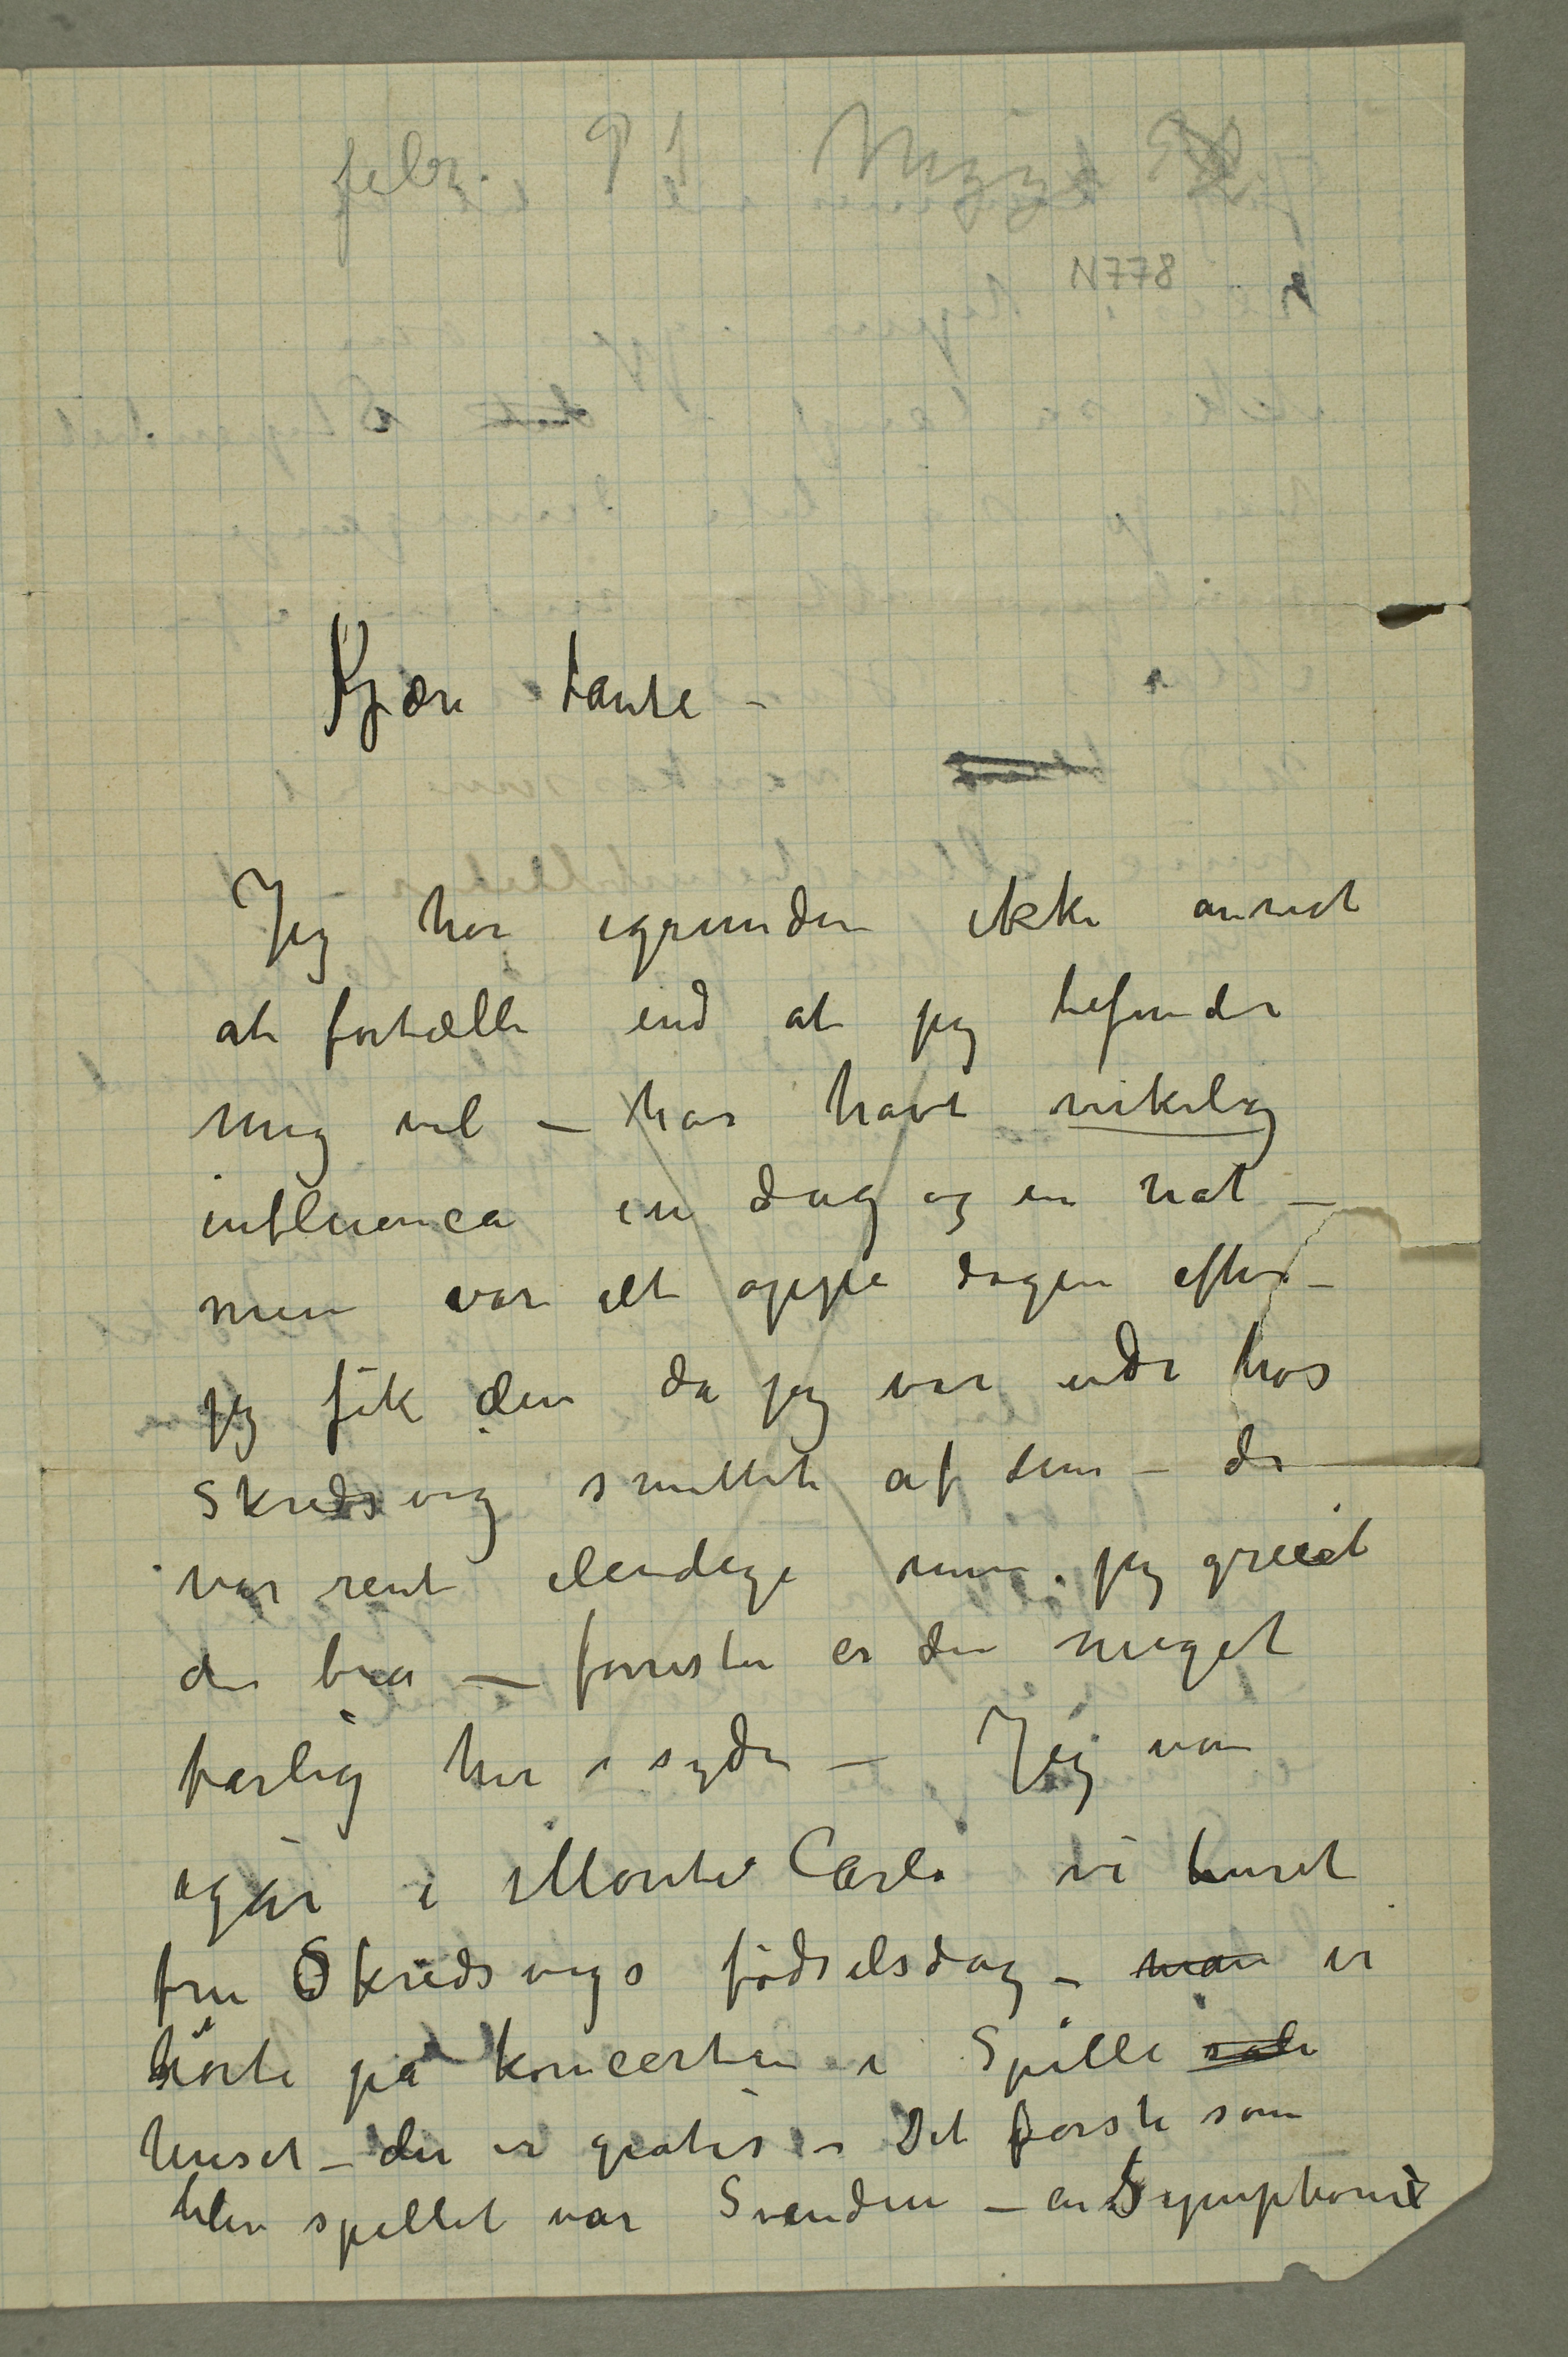 febr. 91 Nizza
N778
Kjære tante –
Jeg har igrunden ikke annet
at fortælle end at jeg befinder
mig vel – har havt virkelig
influenca en dag og en nat –
men var alt oppe dagen efter –
jeg fik den da jeg var ude hos
Skredsvig smittet af dem – de
var rent elendige men jeg greiet
den bra – forresten er den meget
farlig her i syden – Jeg var
igår i Monte Carlo vi
fru Skredsvigs fødselsdag – man vi
hørte på koncerten i Spille sale
huset – den er gratis – Det første som
blev spillet var Svendsen – en Symphoni